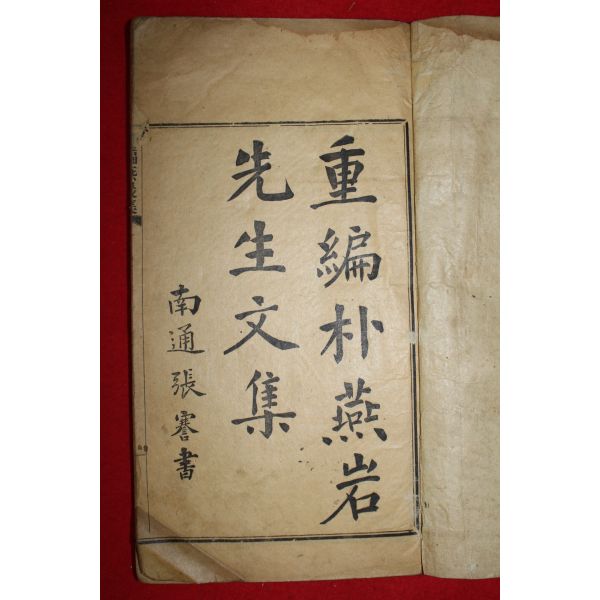 重編朴燕岩
先生文集
南通張謇書